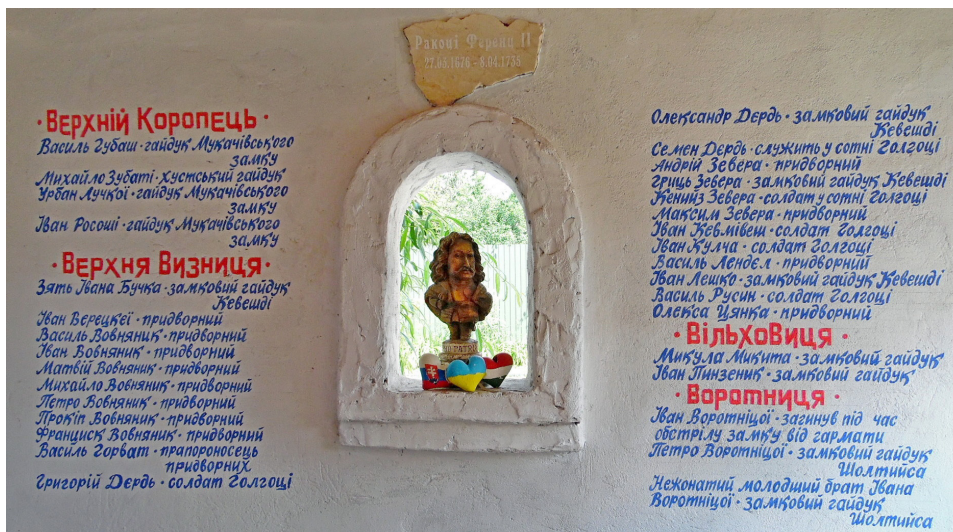 Ракоці Ференц II
27.03.1676 - 8.04.1735
·Верхній Коропець·
Василь Губаш·гайдук Мукачівського
замку
Михайло Зубаті·Хустський гайдук
Урбан Лучкої·гайдук Мукачівського
замку
Іван Росоші·гайдук Мукачівського
замку
·Верхня Визниця·
Зять Івана Бучка·замковий гайдук
Кевешді
Іван Верецкеї·придворний
Василь Вовняник·придворний
Іван Вовняник·придворний
Матвій Вовняник·придворний
Михайло Вовняник·придворний
Петро Вовняник·придворний
Прокіп Вовняник·придворний
Франциск Вовняник·придворний
Василь Горват·прапороносець
придворних
Григорій Дєрдь·солдат Голгоці
Олександр Дєрдь·замковий гайдук
Кевешді
Семен Дєрдь·служить у сотні Голгоці
Андрій Зевера·придворний
Гриць Зевера·замковий гайдук Кевешді
Кенийз Зевера·солдат у сотні Голгоці
Максим Зевера·придворний
Іван Кевмівеш·солдат Голгоці
Іван Кулча·солдат Голгоці
Василь Лендєл·придворний
Іван Лешко·замковий гайдук Кевешді
Василь Русин·солдат Голгоці
Олекса Цянка·придворний
·Вільховиця·
Микула Микита·замковий гайдук
Іван Пинзеник·замковий гайдук
·Воротниця·
Іван Воротніцої·загинув під час
обстрілу замку від гармати
Петро Воротніцої·замковий гайдук
Шолтийса
Нежонатий молодший брат Івана
Воротніцої·замковий гайдук
Шолтийса